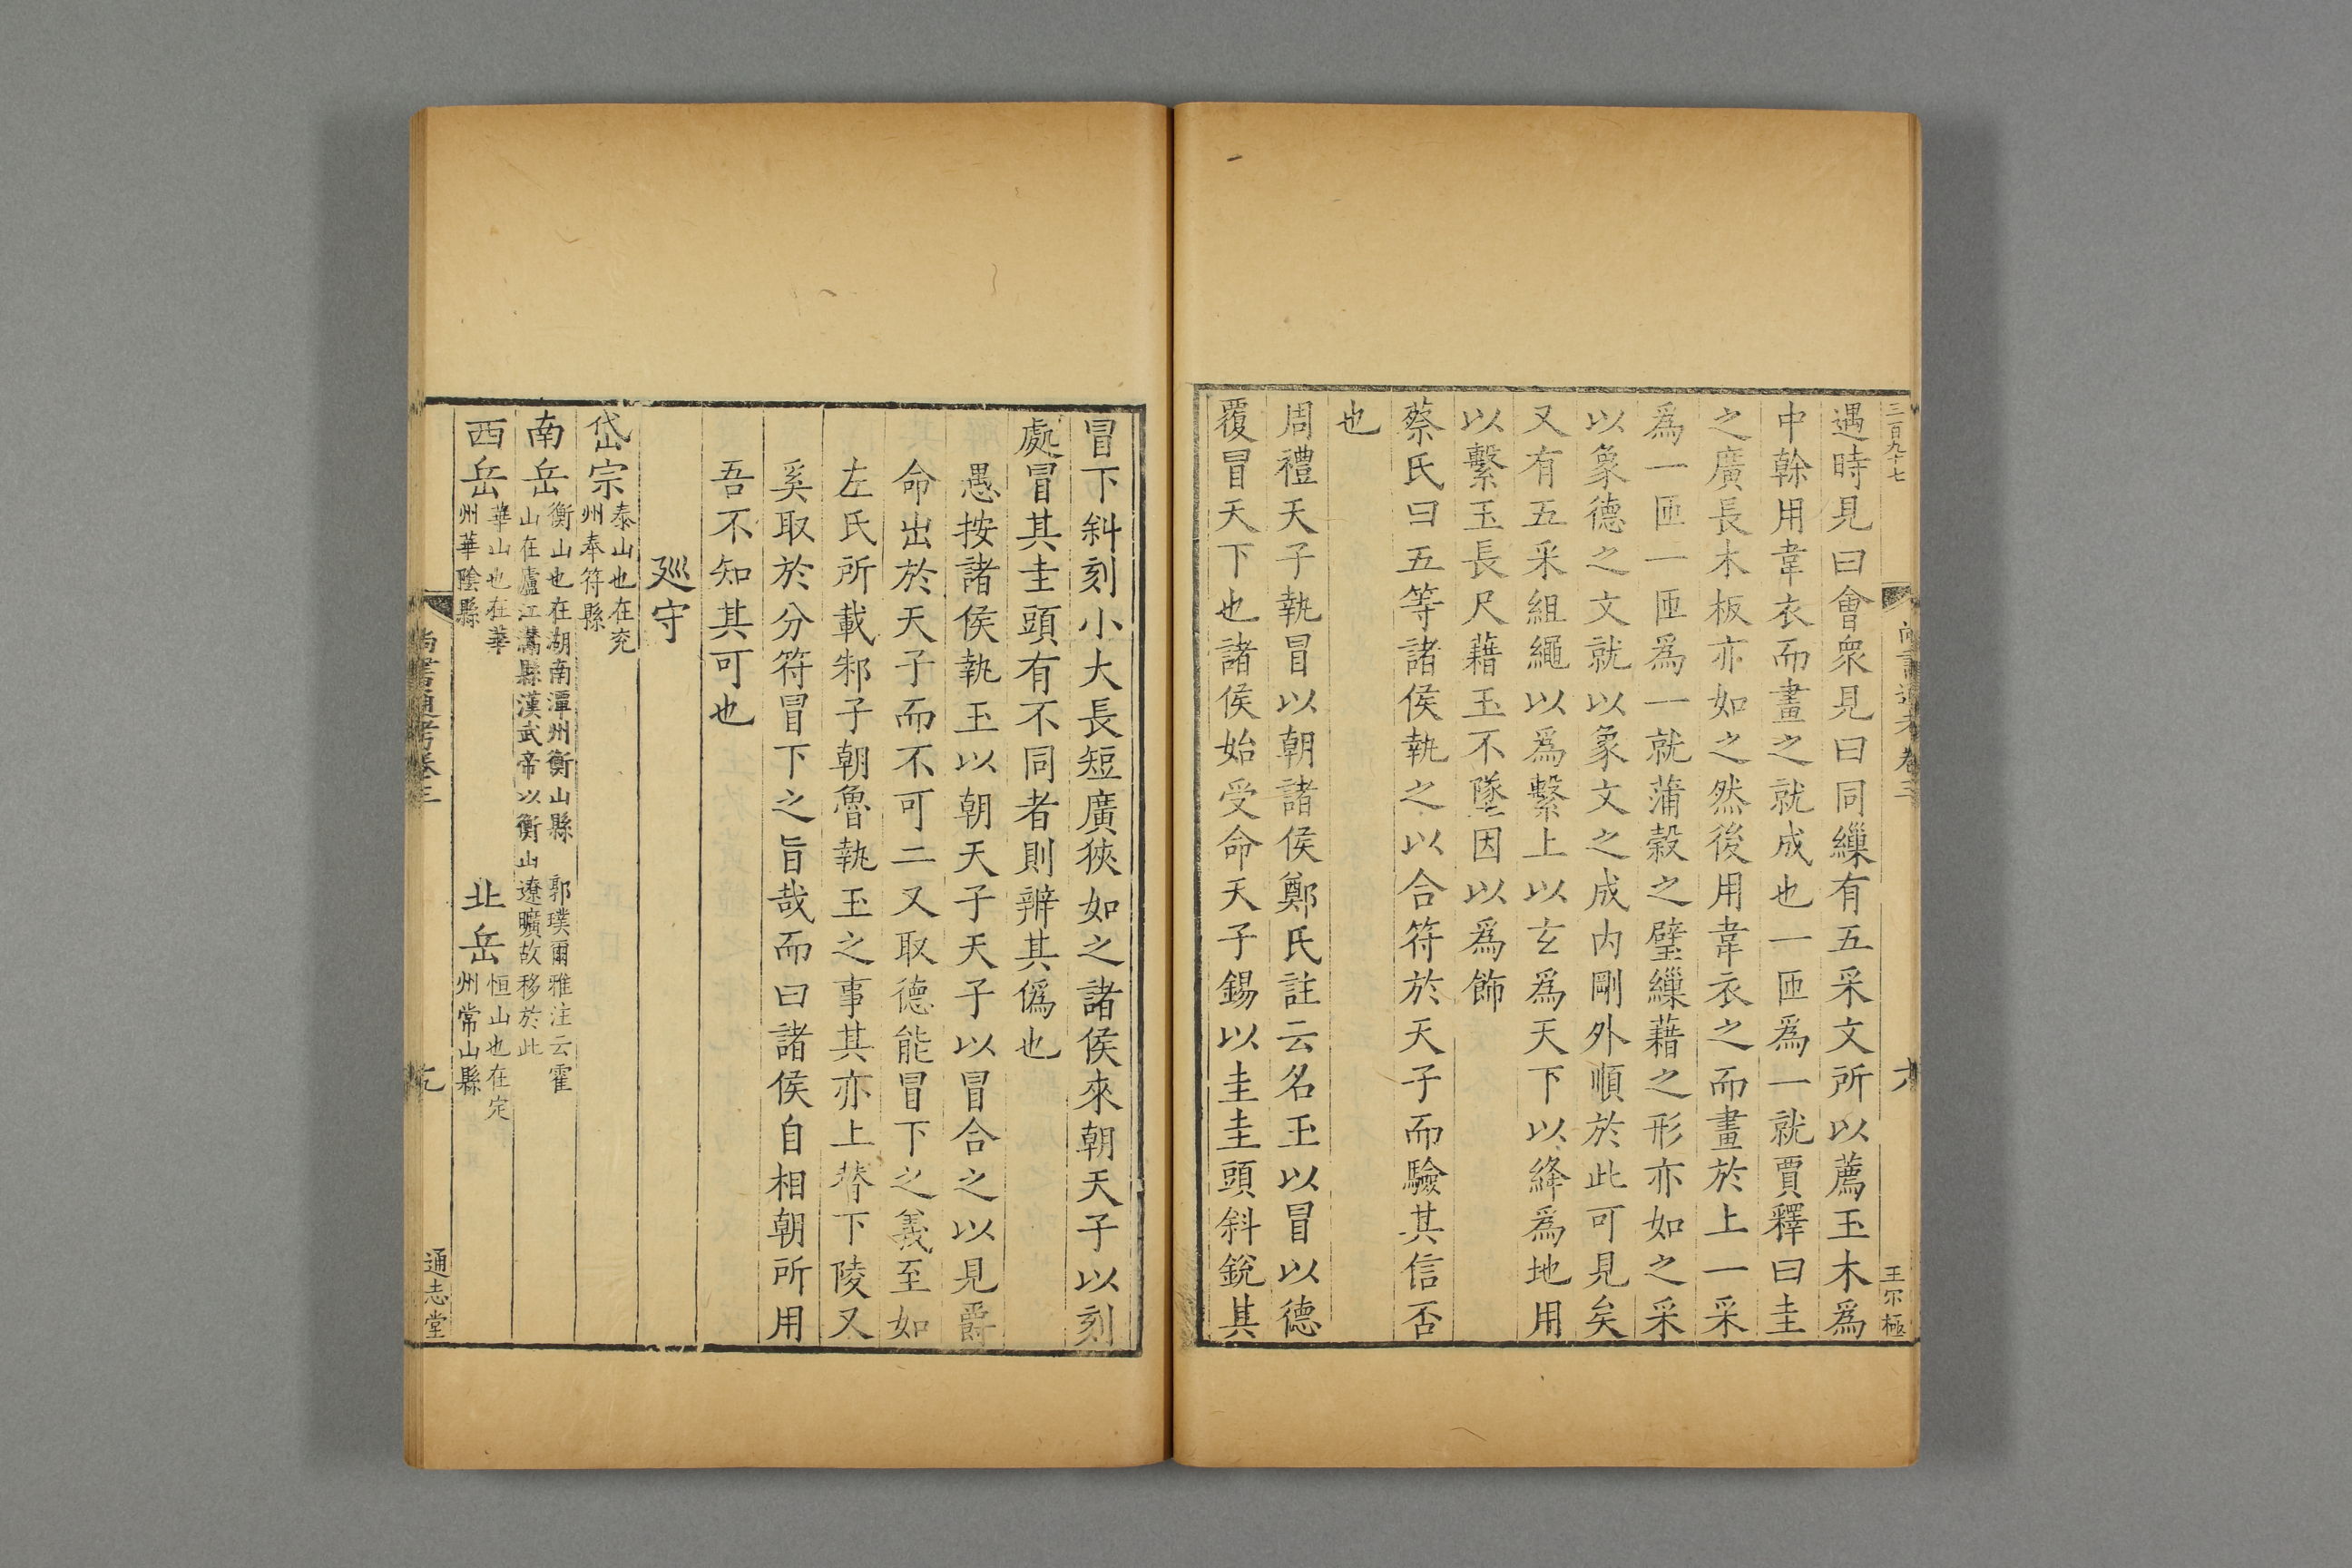 三百九十七
尚書通考卷三
六
王尔極
遇時見曰會衆見曰同繅有五采文所以薦玉木爲
中榦用韋衣而畫之就成也一匝爲一就賈釋曰圭
之廣長木板亦如之然後用韋衣之而畫於上一采
爲一匝一匝爲一就蒲穀之璧繅藉之形亦如之采
以象德之文就以象文之成内剛外順於此可見矣
又有五采組繩以爲繫上以玄爲天下以絳爲地用
以繫玉長尺藉玉不墜因以爲飾
蔡氏曰五等諸侯執之以合符於天子而驗其信否
也
周禮天子執冒以朝諸侯鄭氏註云名玉以冒以德
覆冒天下也諸侯始受命天子錫以圭圭頭斜銳其
冒下斜刻小大長短廣狹如之諸侯來朝天子以刻
處冒其圭頭有不同者則辨其僞也
愚按諸侯執玉以朝天子天子以冒合之以見爵
命出於天子而不可二又取德能冒下之義至如
左氏所載邾子朝魯執玉之事其亦上替下陵又
奚取於分符冒下之旨哉而曰諸侯自相朝所用
吾不知其可也
廵守
岱宗 泰山也在兖
州奉符縣
南岳 衡山也在湖南潭州衡山縣 郭璞爾雅注云霍
山在廬江灊縣漢武帝以衡山遼曠故移於此
西岳 華山也在華
州華陰縣
北岳 恒山也在定
州常山縣
尚書通考卷三
九
通志堂